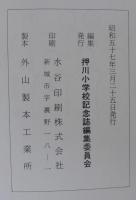 昭和五十七年三月二十五日発行
編集
発行 押川小学校記念誌編集委員会
印刷 水谷印刷株式会社
新城市字裏野一八ー一
製本 外山製本工業所